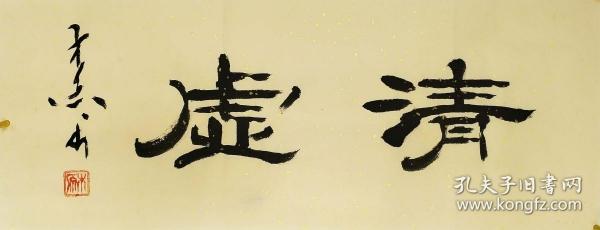 清虚
孔夫子旧書网
www.kongfz.com